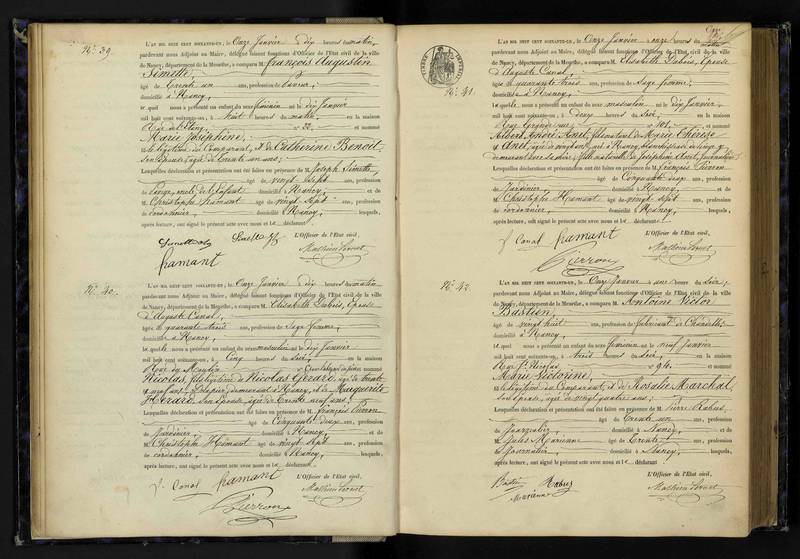 N.º 39.
L'an mil huit cent soixante-un, le Onze Janvier à dix heures du matin,
pardevant nous Adjoint au Maire, délégué faisant fonctions d'Officier de l'Etat civil de la ville
de Nancy, département de la Meurthe, a comparu M. François Augustin
Simette,
âgé de trente un ans, profession de
domicilié à Nancy,
lequel nous a présenté un enfant de sexe féminin né le dix Janvier
mil huit cent soixante-un, à huit heures du matin, en la maison
Rue de l'Etang, n.º 22, et nommé
Marie Joséphine,
fille légitime du Comparant, et de Catherine Benoit,
son épouse, âgée de trente un ans;
Lesquelles déclaration et présentation ont été faites en présence de M. Joseph Simette,
âgé de vingt sept ans, profession
de domicilié à Nancy, et de
M. Christophe Hamant âgé de vingt sept ans, profession
de cordonnier, domicilié à Nancy, lesquels,
après lecture, ont signé le présent acte avec nous et le déclarant
L'Officier de l'Etat civil,
Simette
hamant
N.º 40.
L'an mil huit cent soixante-un, le Onze Janvier à dix heures du matin
pardevant nous Adjoint au Maire, délégué faisant fonctions d'Officier de l'Etat civil de la ville
de Nancy, département de la Meurthe, a comparu M. Elisabeth Dubois, Epouse
d'Auguste Canal,
âgée de quarante trois ans, profession de Sage femme,
domiciliée à Nancy,
laquelle nous a présenté un enfant de sexe masculin né le dix Janvier
mil huit cent soixante-un, à Cinq heures du soir, en la maison
Rue du Moulin et nommé
Nicolas, fils légitime de Nicolas Gérard, âgé de trente
neuf ans, domicilié à Nancy, et de Marguerite
Gérard, son épouse, âgée de trente neuf ans;
Lesquelles déclaration et présentation ont été faites en présence de M. François Pierron
âgé de Cinquante deux ans, profession
de Jardinier domicilié à Nancy, et de
M. Christophe Hamant âgé de vingt sept ans, profession
de cordonnier, domicilié à Nancy, lesquels,
après lecture, ont signé le présent acte avec nous et le déclarant
L'Officier de l'Etat civil,
f. Canal hamant
Pierron
N.º 41.
L'an mil huit cent soixante-un, le Onze Janvier à onze heures du matin
pardevant nous Adjoint au Maire, délégué faisant fonctions d'Officier de l'Etat civil de la ville
de Nancy, département de la Meurthe, a comparu M. Elisabeth Dubois, Epouse
d'Auguste Canal,
âgée de quarante trois ans, profession de Sage femme,
domiciliée à Nancy,
laquelle nous a présenté un enfant de sexe masculin né le dix Janvier,
mil huit cent soixante-un, à Deux heures du soir, en la maison
Rue et nommé
Albert André Anel, fils naturel de Marie Thérèse
Anel, âgée de vingt ans, à Nancy,
fille naturelle de Joséphine Anel,
Lesquelles déclaration et présentation ont été faites en présence de M. François Pierron
âgé de Cinquante deux ans, profession
de Jardinier domicilié à Nancy, et de
M. Christophe Hamant âgé de vingt sept ans, profession
de cordonnier, domicilié à Nancy, lesquels,
après lecture, ont signé le présent acte avec nous et le déclarant
L'Officier de l'Etat civil,
f. Canal hamant
Pierron
N.º 42.
L'an mil huit cent soixante-un, le Onze Janvier à une heure du soir,
pardevant nous Adjoint au Maire, délégué faisant fonctions d'Officier de l'Etat civil de la ville
de Nancy, département de la Meurthe, a comparu M. Antoine Victor
Bastien,
âgé de vingt huit ans, profession de fabricant de Chandelles
domicilié à Nancy,
lequel nous a présenté un enfant de sexe féminin né le neuf Janvier
mil huit cent soixante-un, à trois heures du soir, en la maison
Rue St. Nicolas n.º 94. et nommé
Marie Victorine,
fille légitime du Comparant, et de Rosalie Marchal,
son épouse, âgée de vingt quatre ans;
Lesquelles déclaration et présentation ont été faites en présence de M. Pierre Rabus,
âgé de trente un ans, profession
de Journalier domicilié à Nancy, et de
M. Jules Marianne âgé de trente ans, profession
de Journalier domicilié à Nancy, lesquels,
après lecture, ont signé le présent acte avec nous et le déclarant
L'Officier de l'Etat civil,
Bastien Rabus
Marianne